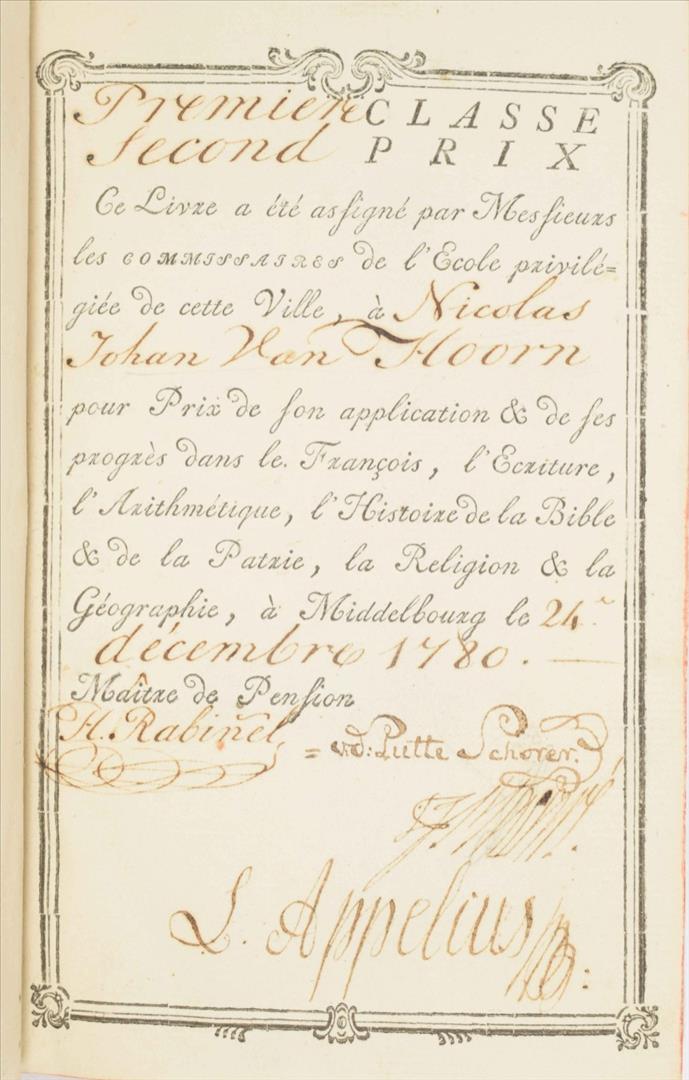 Premiere CLASSE
Second PRIX
Ce Livre a été assigné par Messieurs
les COMMISSAIRES de l'Ecole privilé=
giée de cette Ville, à Nicolas
Johan Van Hoorn
pour Prix de son application & de ses
progrès dans le. François, l'Ecriture,
l'Arithmétique, l'Histoire de la Bible
& de la Patrie, la Religion & la
Géographie, à Middelbourg le 24.
décembre 1780.
Maître de Pension
H. Rabinel
= vd: Putte Schorer.
L. Appelius